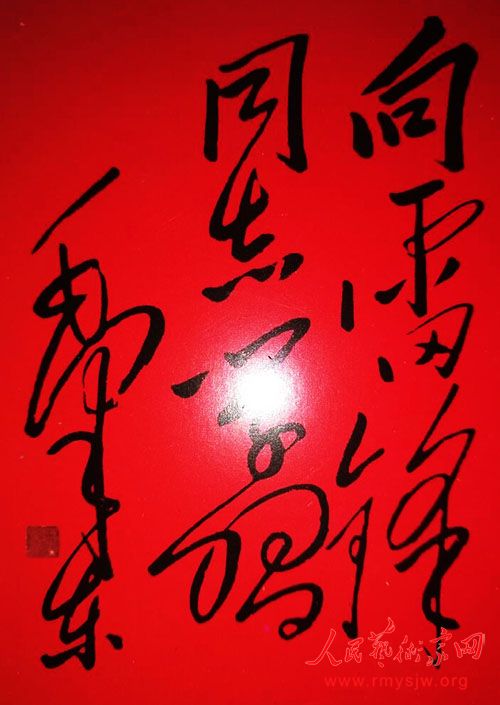 向雷锋
同志学习
毛泽东
人民艺术家网
www.rmysjw.org